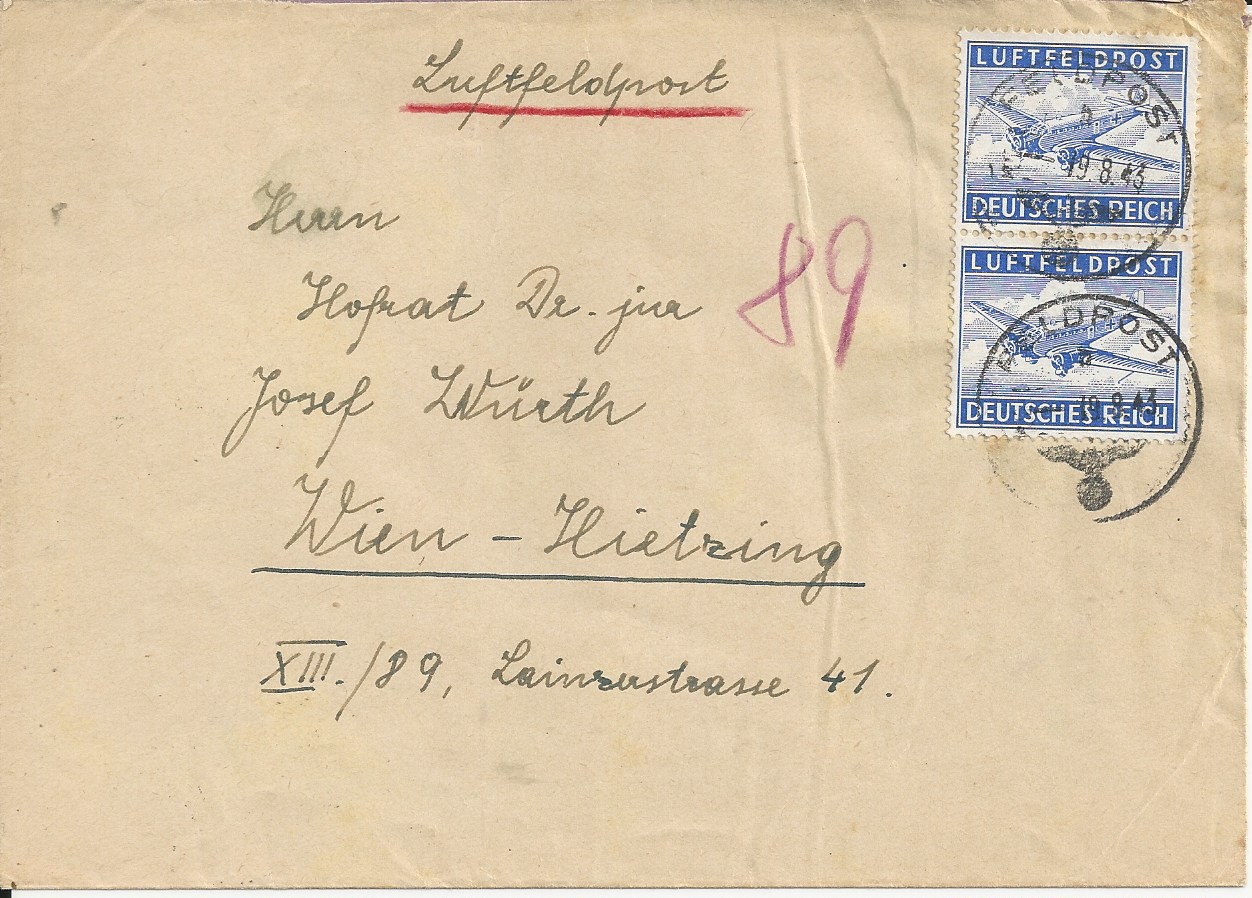 Luftfeldpost
LUFTFELDPOST
FELDPOST
19.8.43
DEUTSCHES REICH
LUFTFELDPOST
FELDPOST
19.8.43
DEUTSCHES REICH
Herrn
Hofrat Dr. jur
89
Josef Würth
Wien - Hietzing
XIII./89, Lainzerstrasse 41.